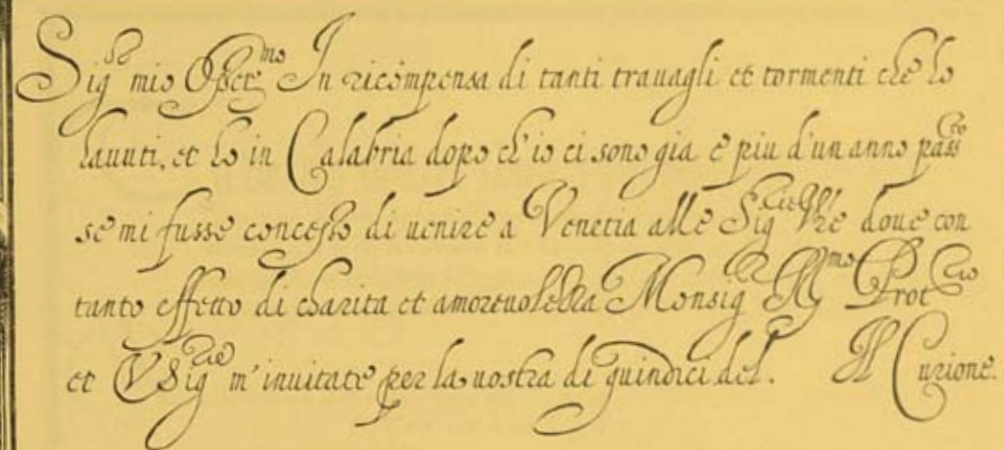 Sig.re mio Osser.mo In ricompensa di tanti trauagli et tormenti che ho
hauuti, et ho in Calabria dopo ch'io ci sono gia è piu d'un anno pass.to
se mi fusse concesso di uenire a Venetia alle Sig.rie V.re doue con
tanto effetto di charita et amoreuolezza Monsig.r Ill.mo Prot.rio
et V Sig.rie m'inuitate per la uostra di quindici del. Il Curione.